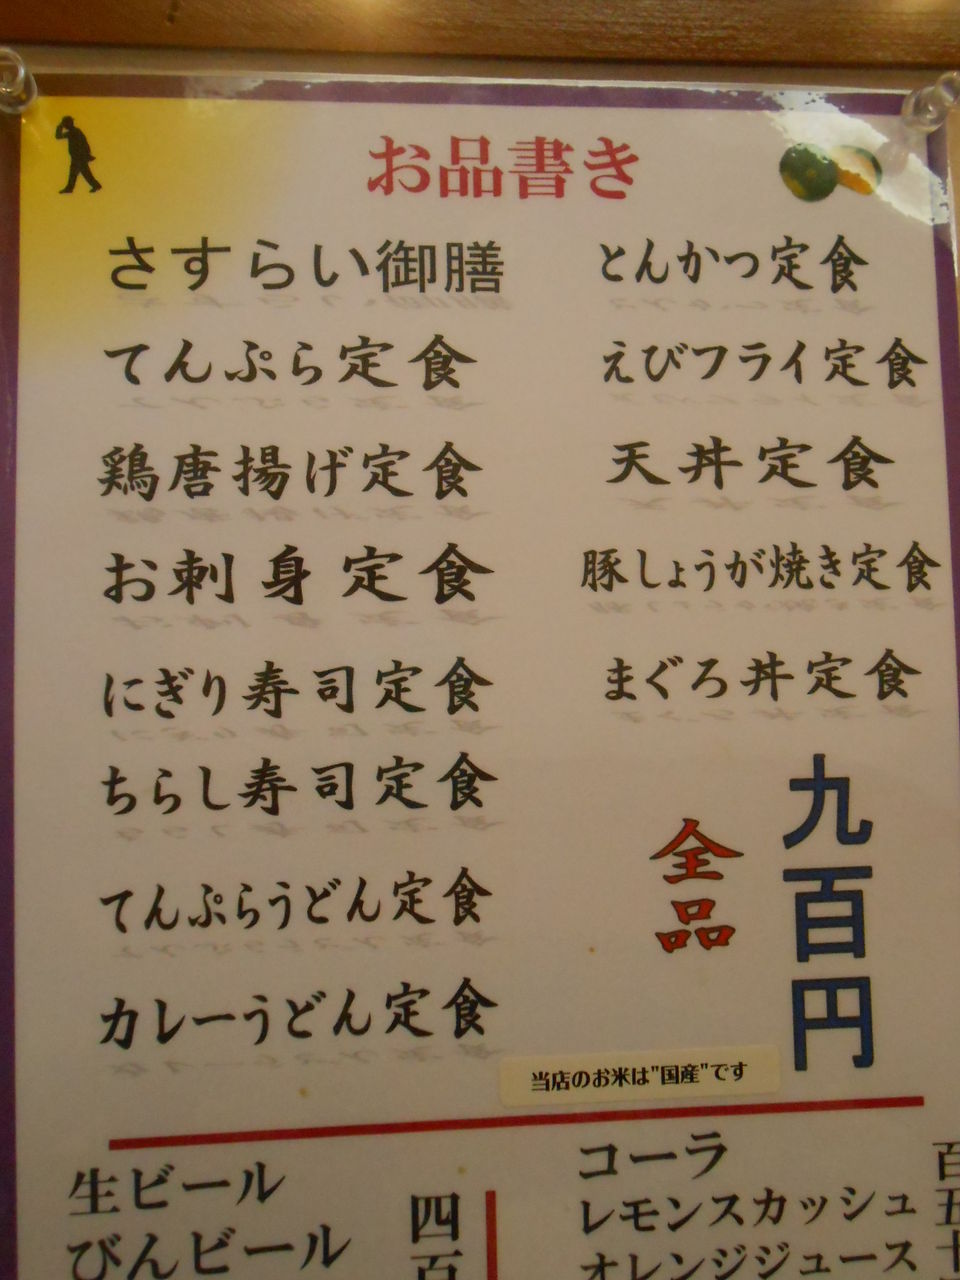 お品書き
さすらい御膳
てんぷら定食
鶏唐揚げ定食
お刺身定食
にぎり寿司定食
ちらし寿司定食
てんぷらうどん定食
カレーうどん定食
とんかつ定食
えびフライ定食
天丼定食
豚しょうが焼き定食
まぐろ丼定食
全品
九百円
当店のお米は"国産"です
生ビール
びんビール
四百
コーラ
レモンスカッシュ
オレンジジュース
百五十